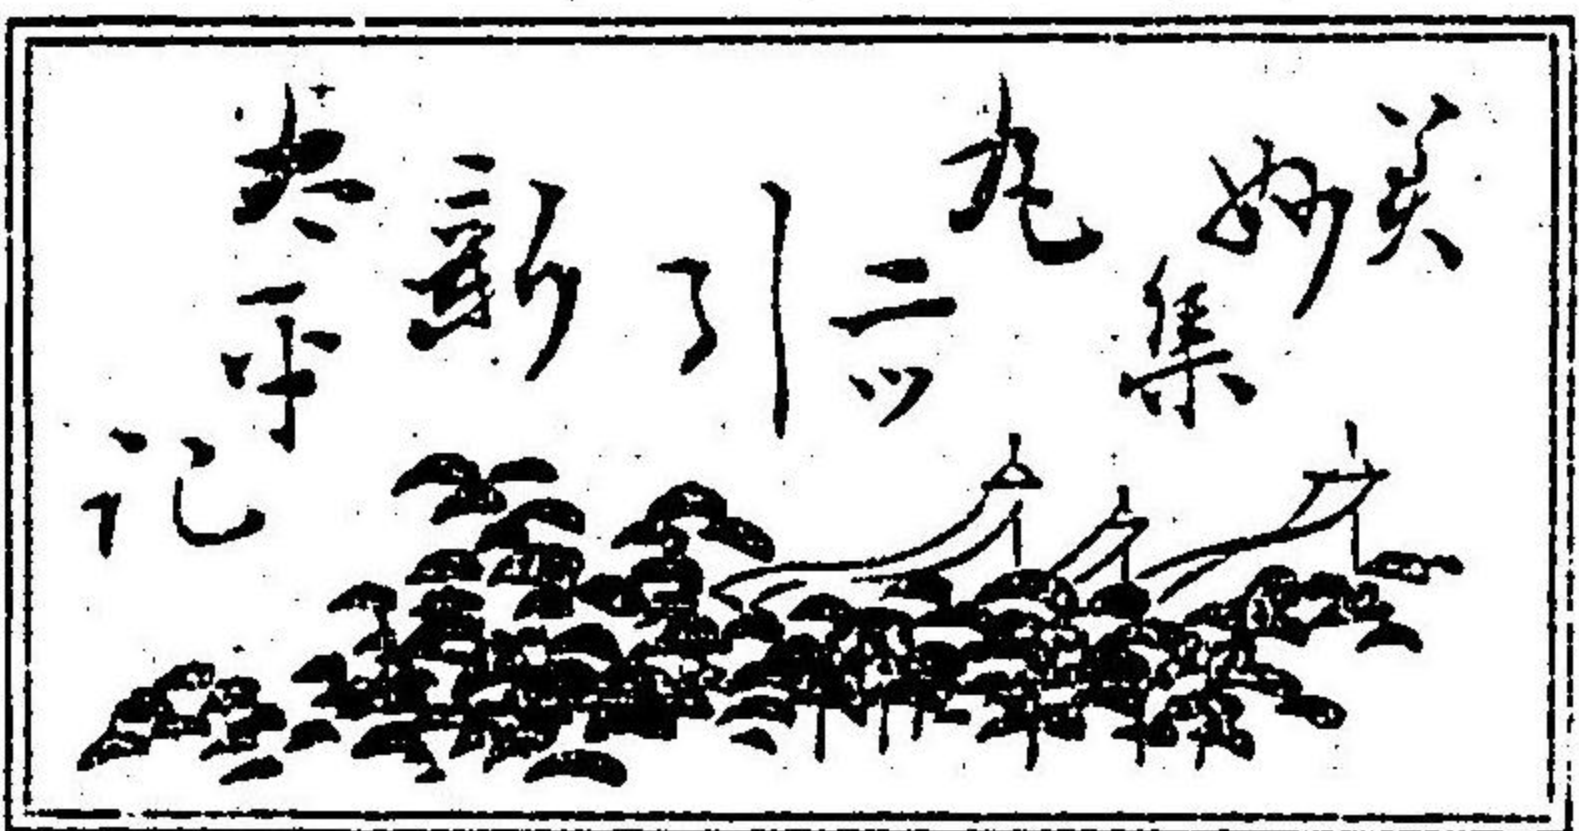 美妙集
丸二ツ引
新太平記